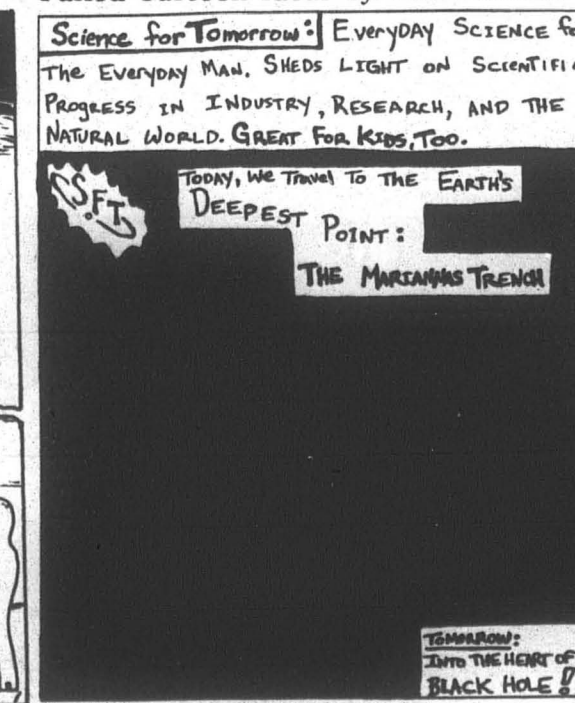 Science for Tomorrow: EveryDAY SCIENCE fo
THE EVERYDAY MAN. SHEDS LIGHT ON SCIENTIFI
PROGRESS IN INDUSTRY, RESEARCH, AND THE
NATURAL WORLD. GREAT FOR KIDS, TOO.
S.F.T.
TODAY, WE TRAVEL TO THE EARTH'S
DEEPEST POINT:
THE MARIANNAS TRENCH
TOMORROW:
INTO THE HEART OF
BLACK HOLE!